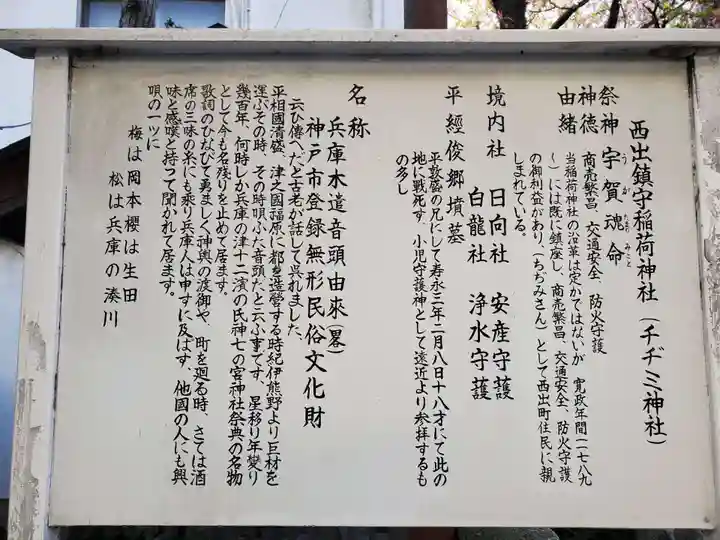 西出鎮守稲荷神社（チヂミ神社）
祭神 宇賀魂命
うが たまの みこと
神徳 商売繁昌、交通安全、防火守護
由緒 当稲荷神社の沿革は定かではないが 寛政年間（一七八九
〜）には既に鎮座し、商売繁昌、交通安全、防火守護
の御利益があり、（ちぢみさん）として西出町住民に親
しまれている。
境内社 日向社 安産守護
白龍社 浄水守護
平經俊郷墳墓
平敦盛の兄にして寿永三年二月八日十八才にて此の
地に戦死す、小児守護神として遠近より参拝するも
の多し
名称
兵庫木遣音頭由來（畧）
神戸市登録無形民俗文化財
云ひ傳へだと古老が話して呉れました
平相國清盛、津之國福原に都を造營する時紀伊熊野より巨材を
運ぶその時、その時唄ふた音頭だと云ふ事です、星移り年變り
幾百年、何時しか兵庫の津十二濱の氏神七の宮神社祭典の名物
として今も名殘りを止めて居ます。
歌詞のひなびて勇ましく神輿の渡御や、町を廻る時、さては酒
席の三味の糸にも乘り兵庫人は申すに及ばす、他國の人にも興
味と感嘆と持つて聞かれて居ます。
唄の一ツに
梅は岡本櫻は生田
松は兵庫の湊川